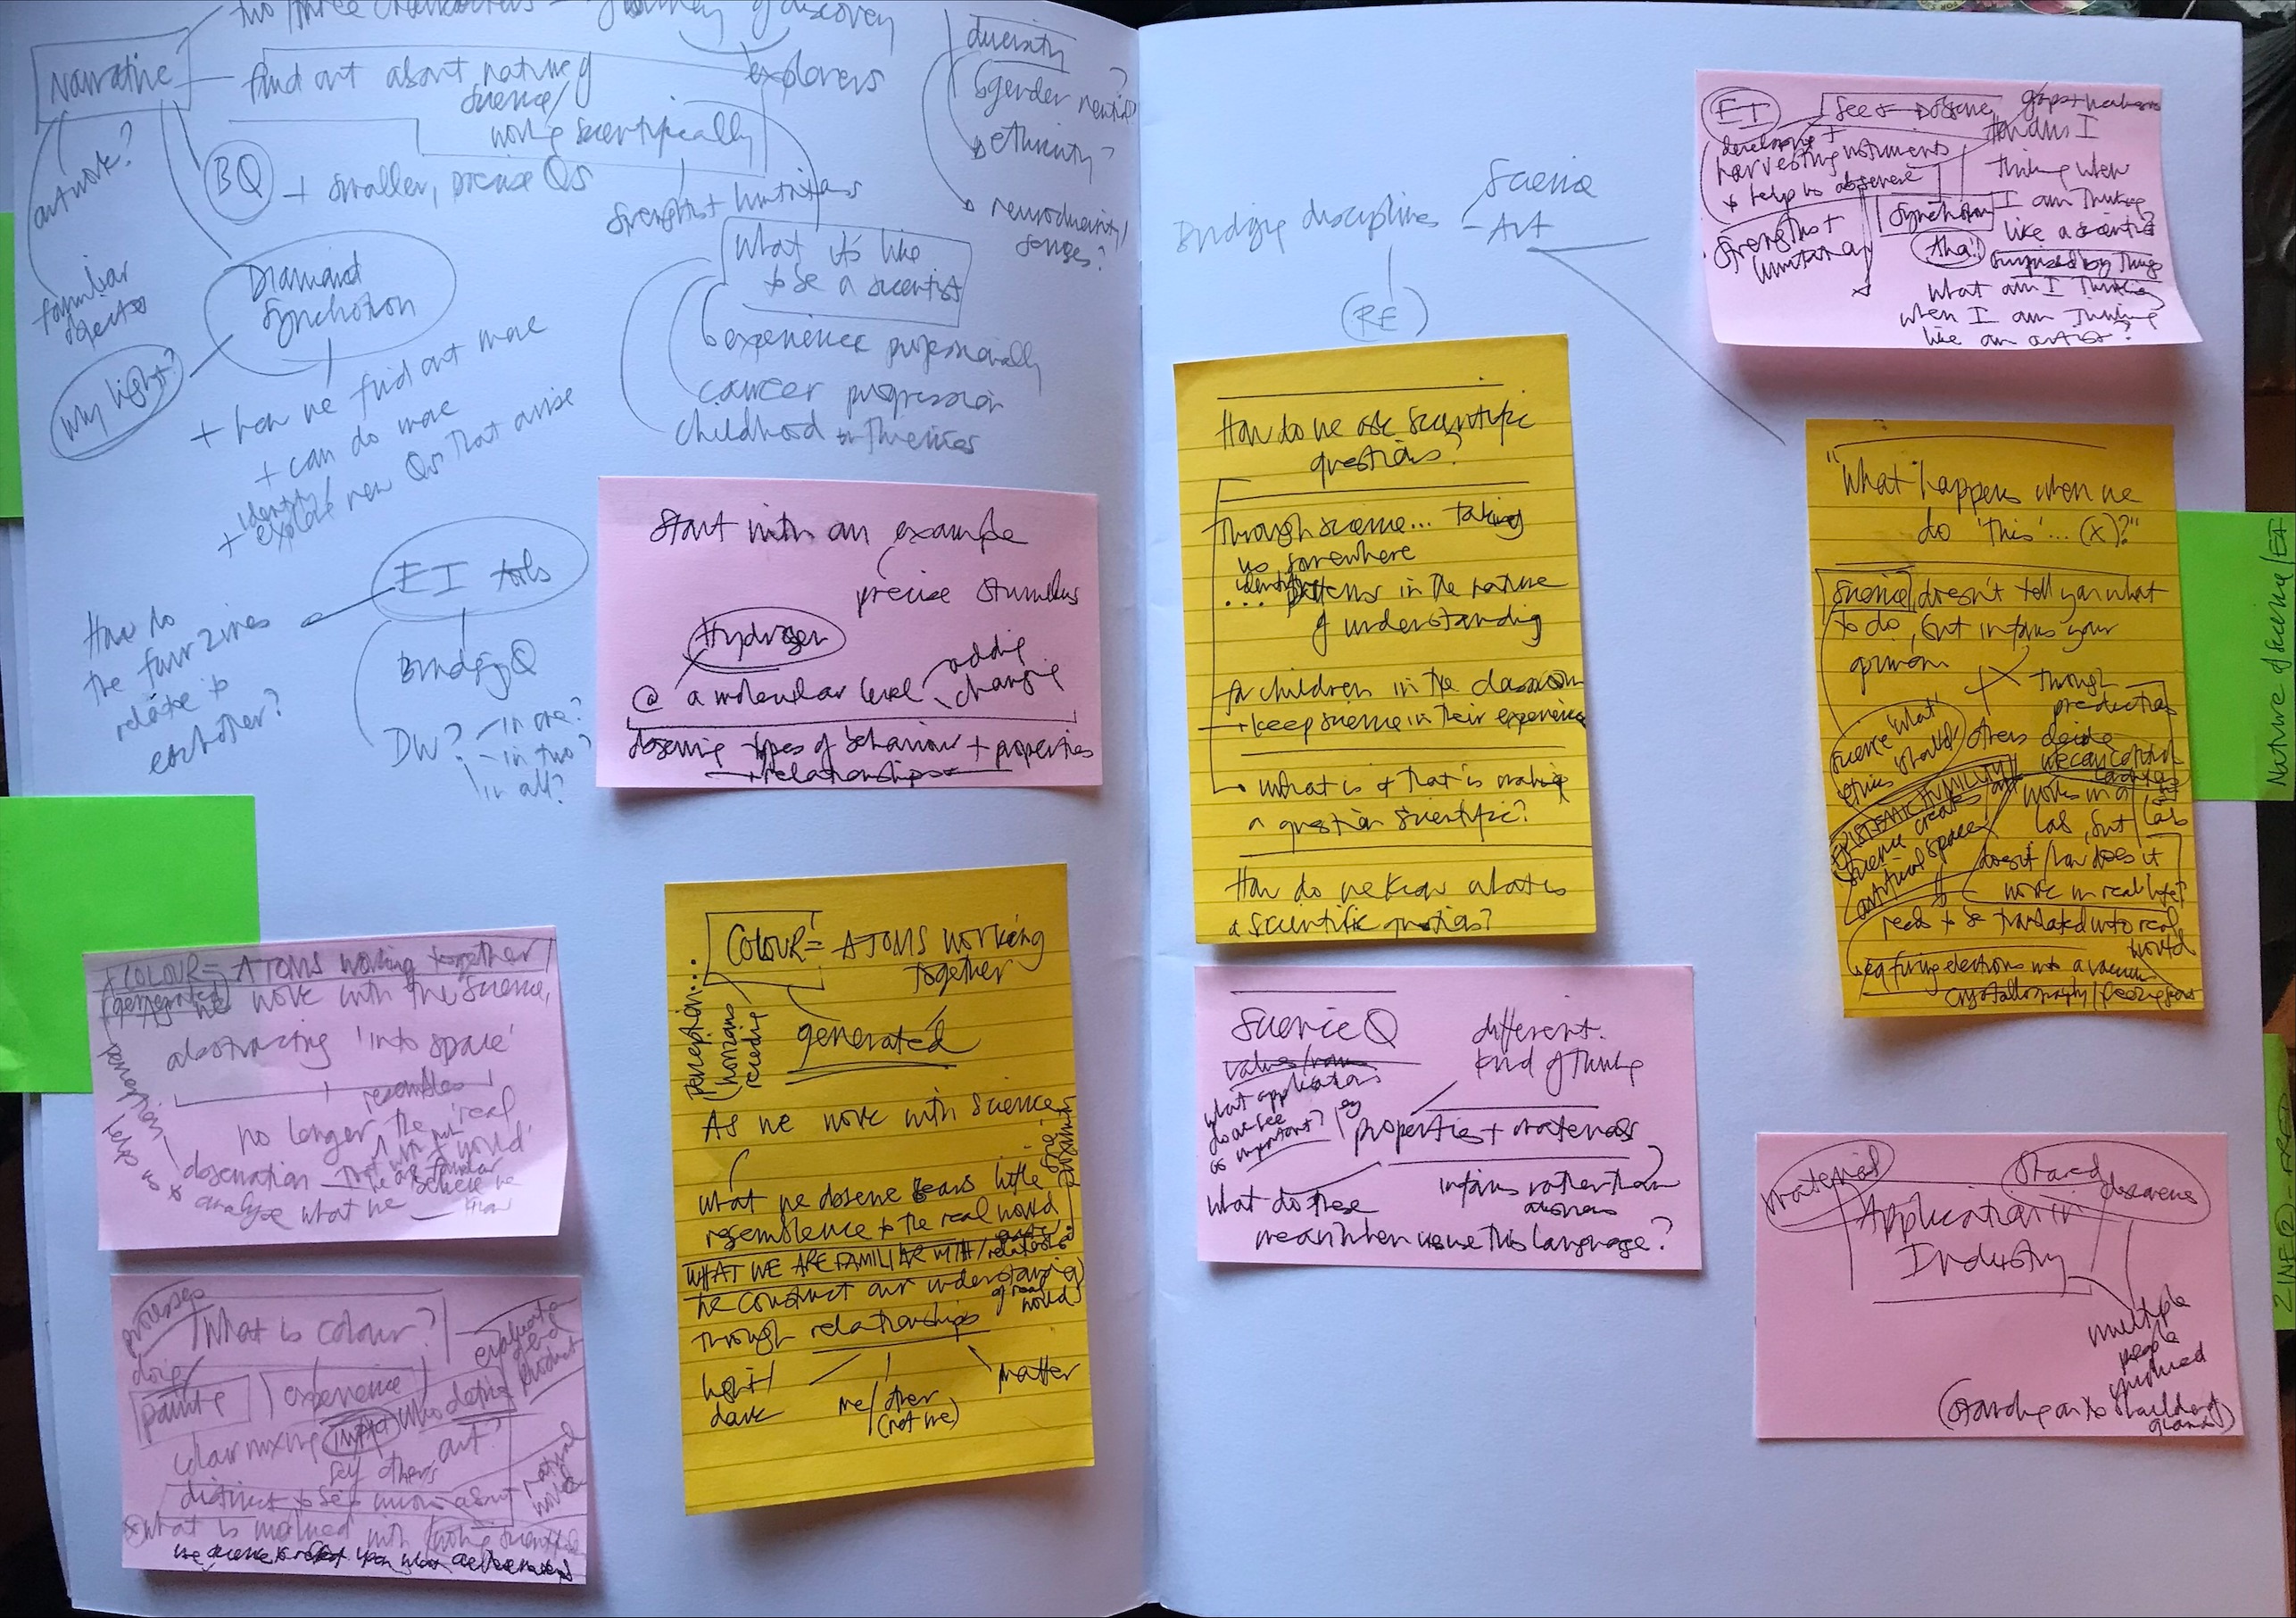 two/three characters - journey of discovery
Narrative
find out about nature of
science/
working scientifically
explorers
diversity
gender neutral?
ethnicity?
neurodiversity/
senses?
artwork?
familiar
objects
BQ + smaller, precise Qs
strengths + limitations
What it's like
to be a scientist
experience professionally
career progression
childhood influences
Diamond
Synchotron
Why light?
+ how we find out more
+ can do more
+ identify/
explore new Qs that arise
EI tools
How do
the four zines
relate to
each other?
Bridging Q
DW? - in one?
- in two?
in all?
Start with an example
precise stimulus
Hydrogen
@ a molecular level
adding
changing
observing types of behaviour + properties
+ relationships
* COLOUR = ATOMS working together/
(generated)
As we work with the science,
abstracting 'into space'
resembles
no longer the 'real
world'
observation
analyse what we
perception
helps us to
processes
What is colour?
evaluate
end
product
doing
paints
experience
colour mixing
impact
who defines
art?
self others
distinct
natural
world
What is involved with
COLOUR = ATOMS working
together
generated
perception...
(horizons
receding)
As we work with science
what we observe bears little
resemblence to the real world
WHAT WE ARE FAMILIAR WITH/
We construct our understanding
of real
world
through relationships
light/
dark
me/other
(not me)
matter
Bridging disciplines
Science
- Art
(RE)
How do we ask scientific
questions?
through science... taking
us somewhere
identifying
... patterns in the nature
of understanding
for children in the classroom
+ keep science in their experience
• what is it that is making
a question scientific?
How do we know what is
a scientific question?
Science Q
different
kind of thinking
what applications
do we see
as important?
eg
properties + materials
What do these
informs rather than
mean when we use this language?
EI
See + observe
developing +
harvesting instruments
+ help us observe
strengths +
limitations
Synchotron
Aha!
How am I
thinking when
I am thinking
like a scientist?
surprised by things
what am I thinking
when I am thinking
like an artist?
"What happens when we
do 'this'... (x)?"
Science doesn't tell you what
to do, but informs your
opinion
through
prediction
science 'what'
ethics 'should'
others decide
we can control
EPISTEMIC HUMILITY
science creates
artificial space
works in a
lab, but
doesn't/how does it
work in real life?
needs to be translated into real
world
eg firing electrons into a vacuum
crystallography/
material
shared
discoveries
Application in
Industry
multiple
people
involved
(standing on the shoulders of
giants)
Nature of Science/EI